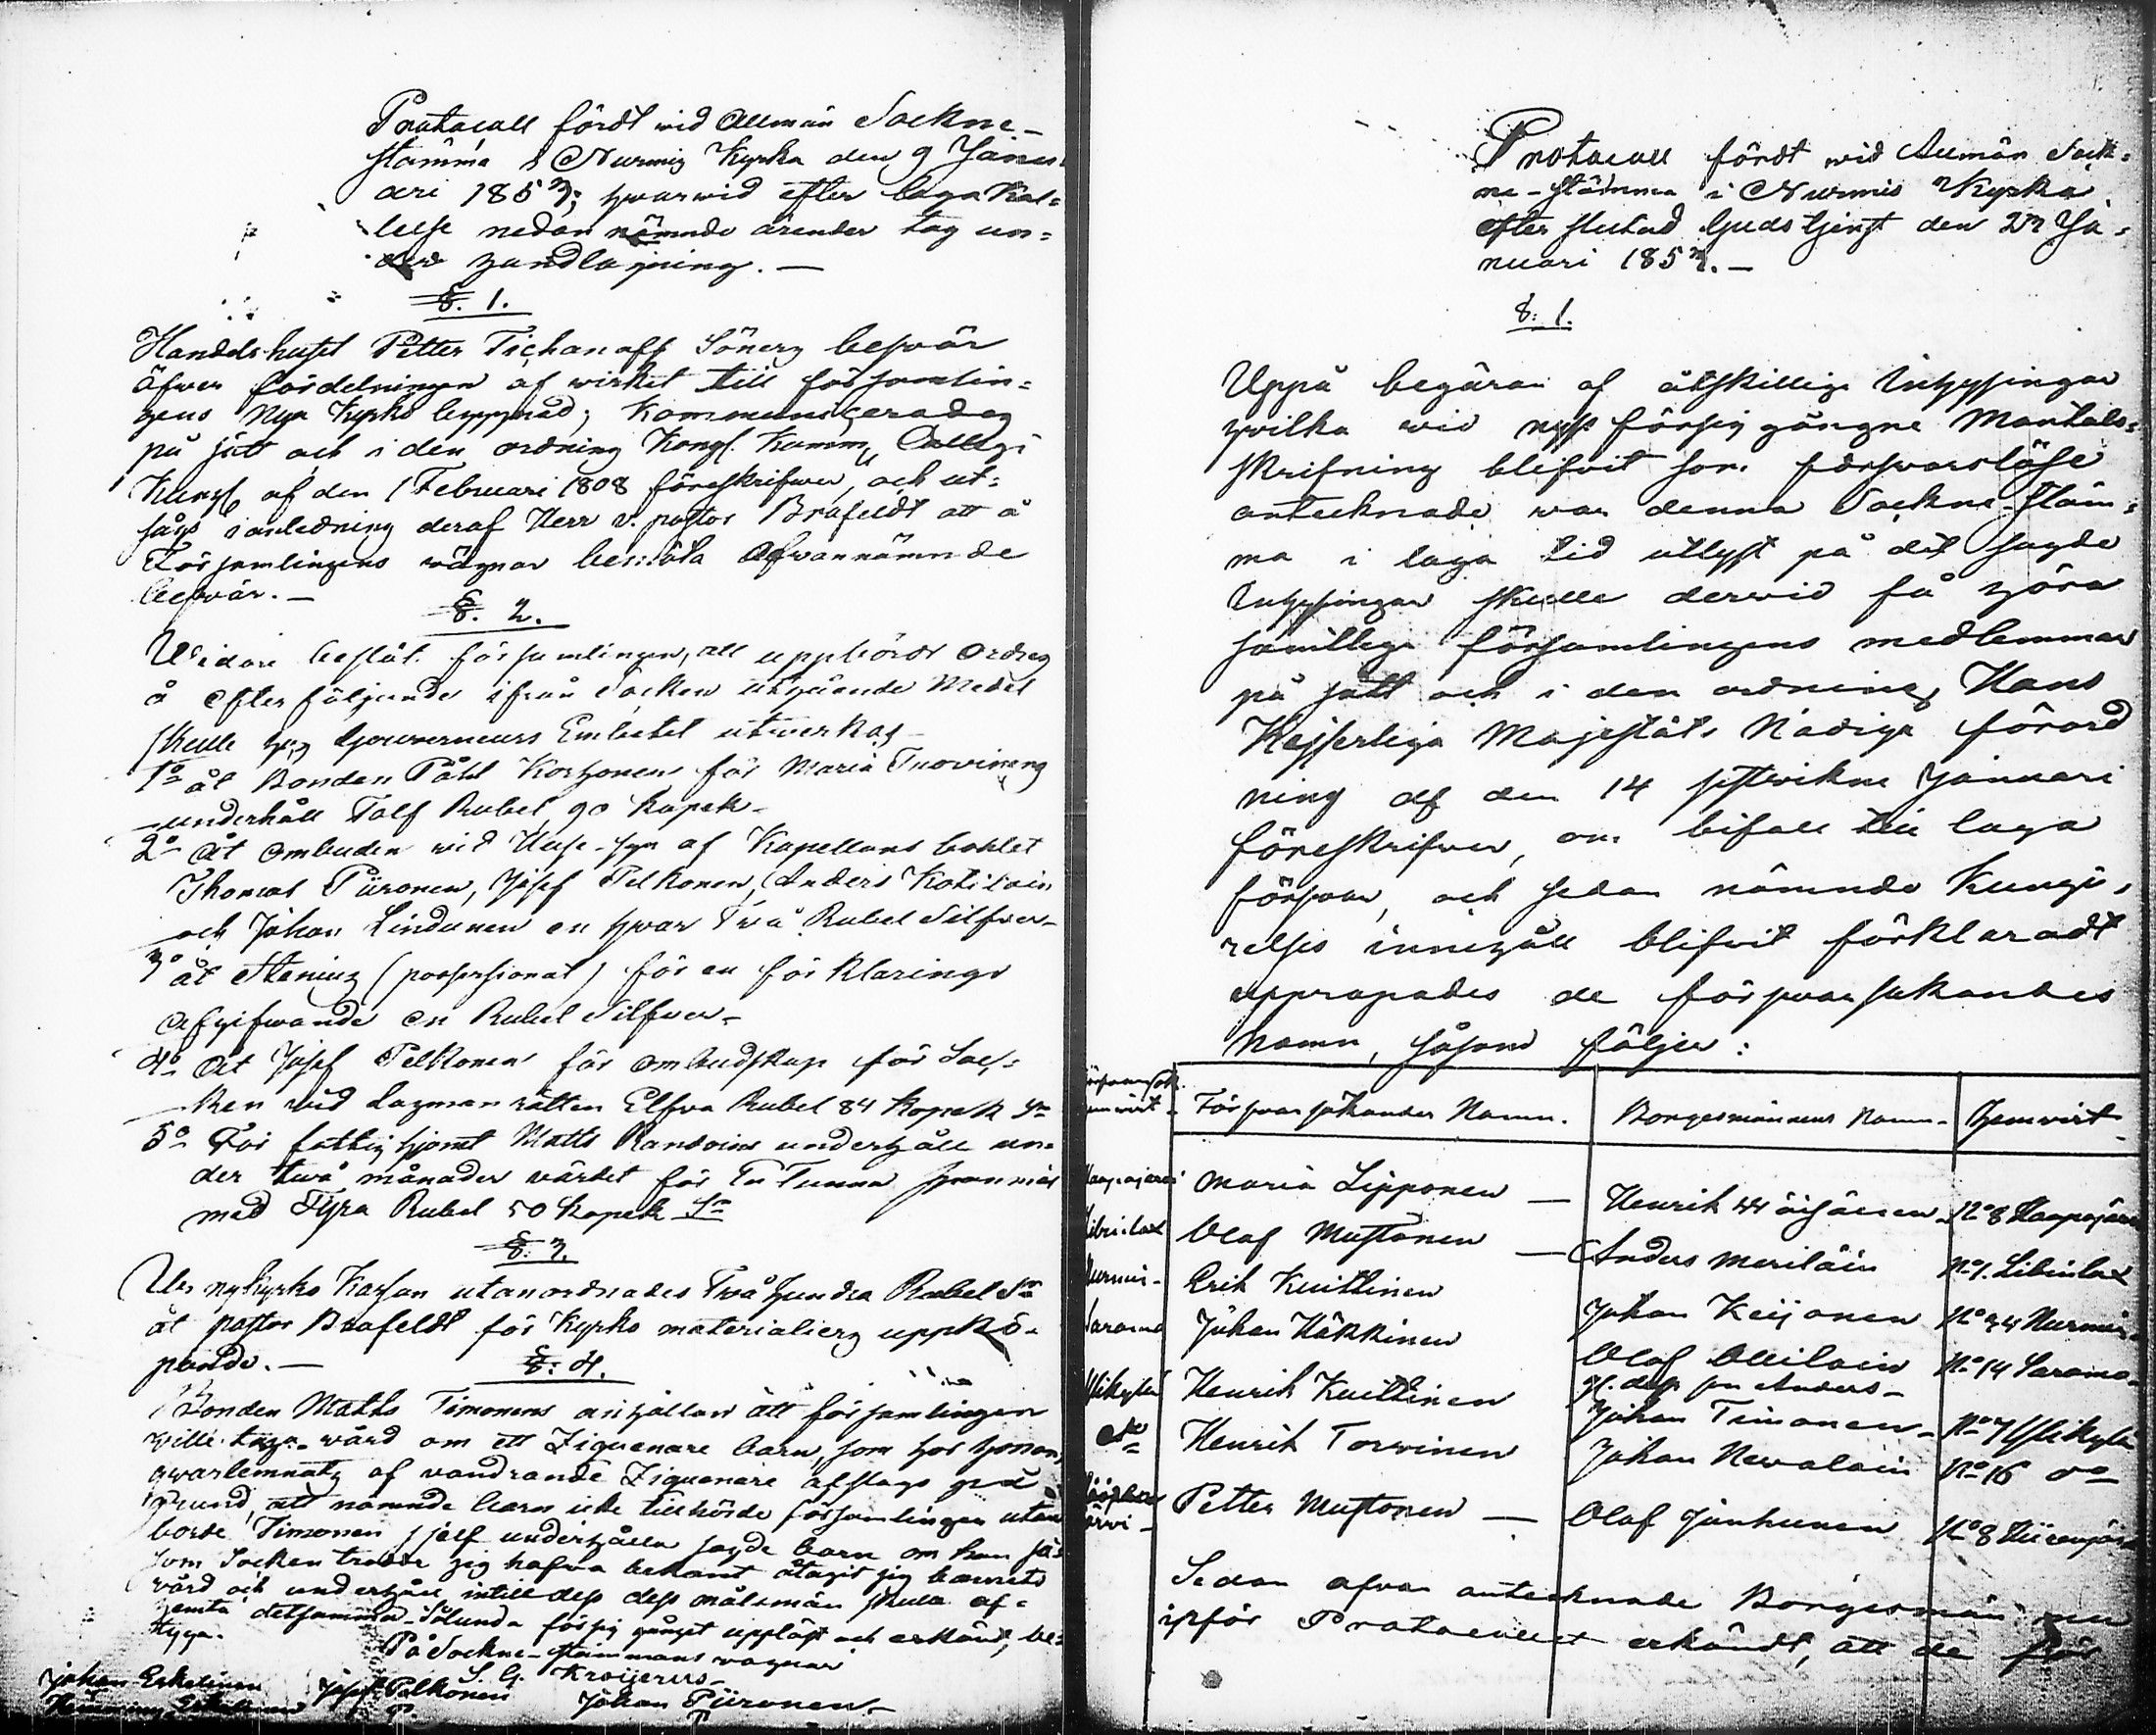 Protocoll fördt wid Allmän Sockne-
stämma i Nurmis Kyrka den 9 Janu
ari 1853; hwarwid efter laga Kal=
lelse nedan nämnde ärender tog un=
der handläggning. —
§. 1.
Handelshuset Petter Tichanoff Söners beswär
öfwer fördelningen af wirket till församlin=
gens Nya Kyrko byggnad; kommunicerades
på sätt och i den ordning Kongl. Kamm. Collegi
Kungl. af den 1 Februari 1808 föreskrifwer, och ut=
sågs i anledning deraf Herr v. pastor Brofeldt att å
Församlingens wägnar bemöta ofwannämnde
beswär. —
§. 2.
Widare beslöt församlingen, att uppbörds Ordres
å efterföljande ifrån Socken utgående Medel
skulle hos Gouverneurs Embetet utwerkas
1o åt Bonden Påhl Korhonen för Maria Tuovinens
underhåll Tolf Rubel 90 kopek-
2o åt ombuden wid Huse-syn af Kapellans bohlet
Thomas Piironen, Josef Pelkonen, Anders Kotilain
och Johan Lindunen en hwar Twå Rubel Silfwer-
3o åt Stenius (professionat) för en förklarings
Afgifwande en Rubel Silfwer-
4o Åt Josef Pelkonen för ombudskap för Soc=
ken wid Lagmansrätten Elfva Rubel 84 Kopek Sr
5o För fattighjonet Matts Randoins underhåll un=
der twå månader värdet för En Tunna spannmål
med Fyra Rubel 50 kopek Sr
§. 3.
Ur nykyrko Kassan utanordnades Två hundra Rubel Sr
åt pastor Brofeldt för Kyrko materialiers uppkö-
pande. —
§. 4.
Bonden Matts Timonens anhållan att församlingen
wille taga wård om ett Ziguenare barn, som hos honom
qwarlemnats af vandrande Ziguenare afslogs på
grund, att nämnde barn icke tillhörde församlingen utan
borde Timonen sjelf underhålla sagde barn om han så
som Socken trodde sig hafwa bekant åtagit sig barnets
vård och underhåll intill dess dess målsman skulle af=
hemta detsamma. Sålunda försig gånget uppläst och erkändt, be=
tyga.
På Sockne-stämmans vägnar
S. G. Kroijerus-
Johan Eskelinen Josef Pelkonen Johan Piironen-
Protocoll fördt wid Allmän Sock=
ne-stämma i Nurmis Kyrka
efter slutad Gudstjenst den 23 Ja=
nuari 1853. —
§. 1.
Uppå begäran af åtskillige Inhysingar
hvilka wid nyss försiggångne Mantals=
skrifning blifvit som försvarslöse
antecknade war denna Sockne-stäm=
ma i laga tid utlyst på det sagde
Inhysingar skulle derwid få höra
samtlige församlingens medlemmar
på sätt och i den ordning, Hans
Kejserliga Majestäts Nådiga förord
ning af den 14 sistvikne Januari
föreskrifwer, om bifall till laga
försvar, och sedan nämnde Kungö=
relses innehåll blifvit förklaradt
uppropades de försvarsökandes
Namn, såsom följer:
Försvarsök. hemvist. Försvarsökandes Namn. Borgesmännens Namn- Hemvist-
Haapajärvi Maria Lipponen — Henrik Määttäinen No 8 Haapajärvi
Libinlax Olaf Mustonen — Anders Meriläin No 1. Libinlax
Nurmis- Erik Kuittinen Johan Keijonen No 34 Nurmis-
Saramo Johan Häkkinen Olaf Ollilain gl. dess son Anders- No 14 Saramo-
Ylikylä Henrik Kuittinen Johan Timonen- No 7 Ylikylä
do Henrik Torvinen Johan Nevalain No 16 do
Petter Mustonen — Olaf Jänhunen No 8
Sedan ofvan antecknade Borgesmän
inför Protocollet erkändt, att de för